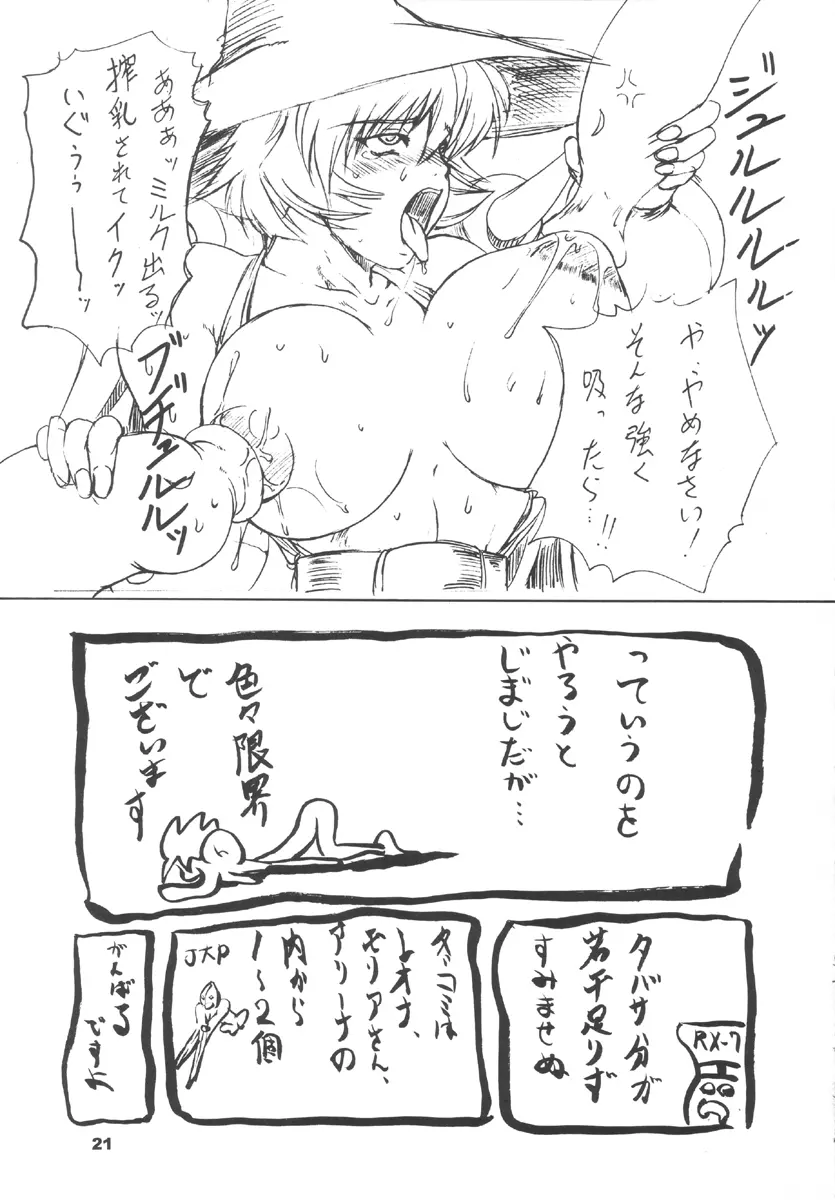 や、やめなさい!
そんな強く
吸ったら…!!
ジュルルルルッ
あああッミルク出るッ
搾乳されてイクッ
いぐうぅーーッ
ブヂュルルルッ
っていうのを
やろうと
じまじだが…
色々限界
で
ございます
タバサ分が
若干足りず
すみませぬ
RX-7
レオナ、
モリアさん、
アリーナの
内から
1〜2個
がんばる
ですよ
21